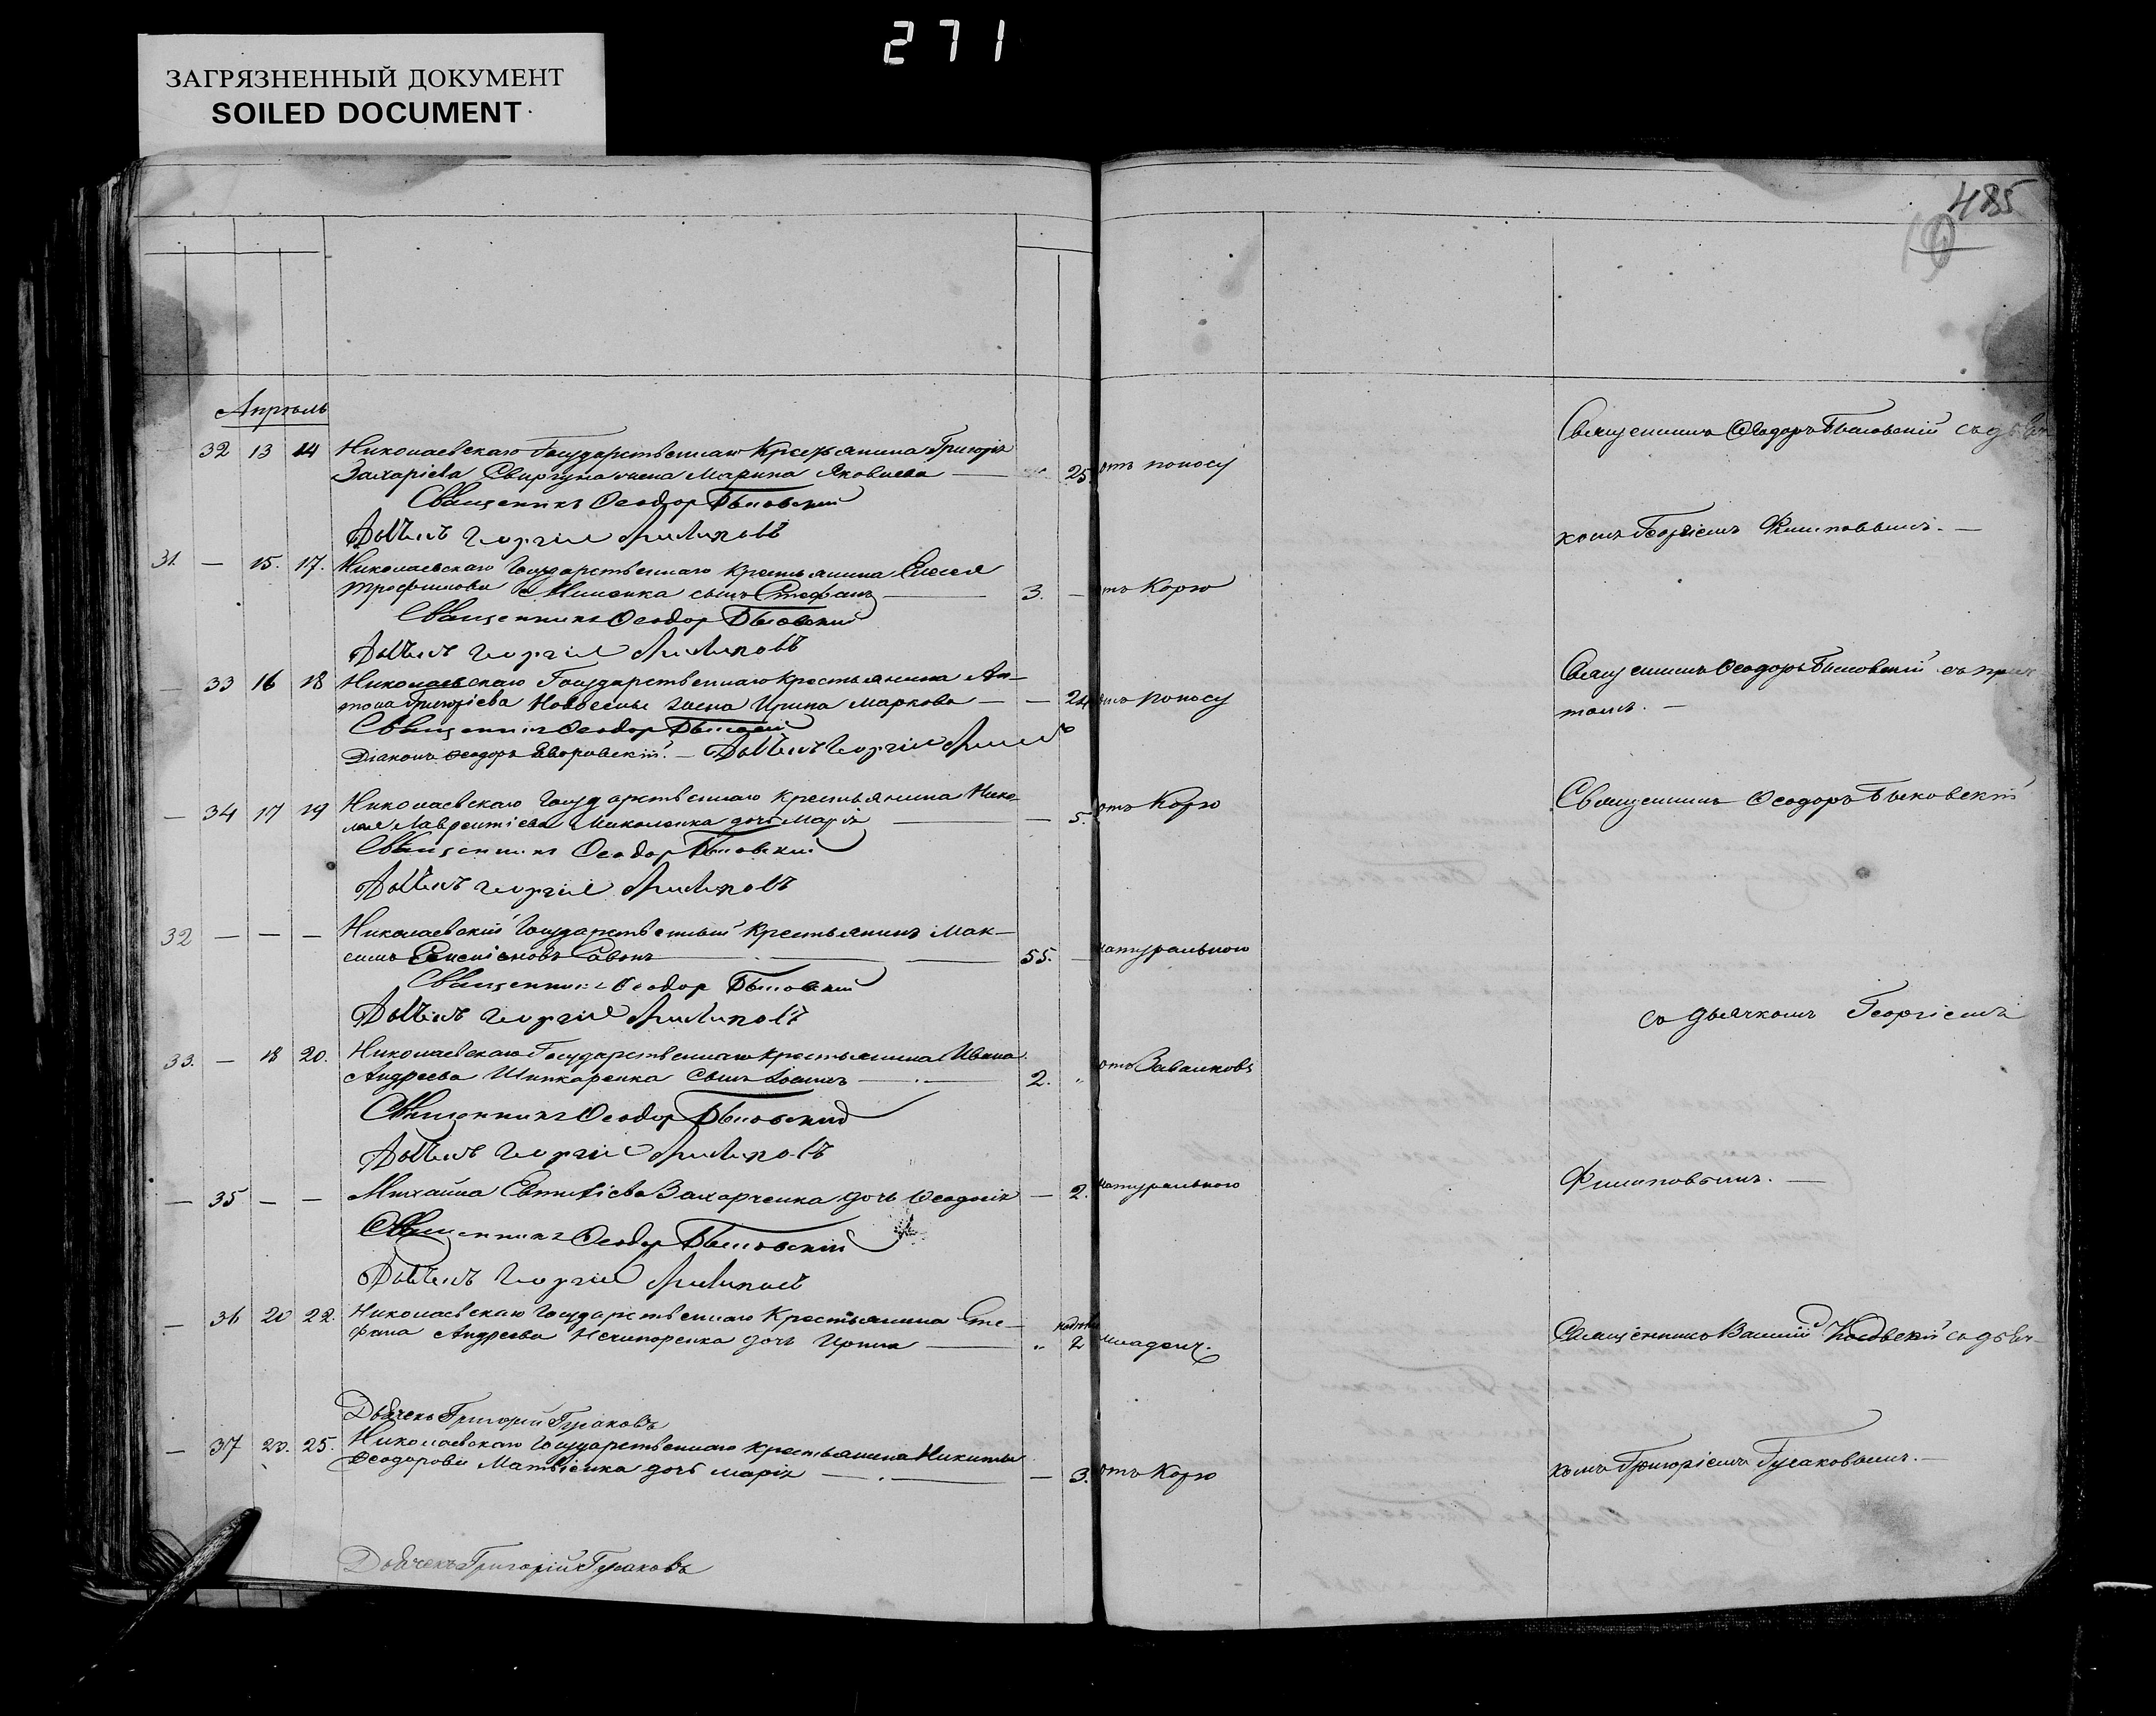 271
ЗАГРЯЗНЕННЫЙ ДОКУМЕНТ
SOILED DOCUMENT
485
Апрѣль
— 32 13 14 Николаевскаго Государственнаго Крестьянина Григорія
Захаріева Свиргуна жена Марина Яковлева — 25 отъ поносу
Священникъ Ѳеодоръ Быковскій съ дьяч
Священникъ Ѳеодор Быковский
Дьячекъ Георгій Филиповъ
комъ Георгіемъ Филиповымъ. —
31. — 15. 17. Николаевскаго Государственнаго Крестьянина Елисея
Трофимова сынъ Стефанъ — 3. — отъ Корю
Священникъ Ѳеодор Быковский
Дьячекъ Георгій Филиповъ
— 33 16 18 Николаевскаго Государственнаго Крестьянина Ан-
тона Григорієва жена Ирина Маркова — — 24 отъ поносу
Священникъ Ѳеодоръ Быковскій съ прич
томъ. —
Священникъ Ѳеодор Быковский
Діаконъ Ѳеодоръ Яворовскій. — Дьячекъ Георгій
— 34 17 19 Николаевскаго Государственнаго Крестьянина Нико-
лая Лаврентіева Миколенка дочь Марія — — 5. отъ Корю
Священникъ Ѳеодоръ Быковскій
Священникъ Ѳеодор Быковский
Дьячекъ Георгій Филиповъ
32 — — — Николаевскій Государственный Крестьянинъ Мак-
симъ — 55. — натурального
Священникъ Ѳеодор Быковский
Дьячекъ Георгій Филиповъ
съ дьячкомъ Георгіемъ
33. — 18 20. Николаевскаго Государственнаго Крестьянина Ивана
Андреева Шинкаренка сынъ — 2. „ отъ Завалковъ
Священникъ Ѳеодор Быковский
Дьячекъ Георгій Филиповъ
— 35 — — Михаила Евтихіева Захарченка дочь Ѳеодосія — 2. натурального
Филиповымъ. —
Священникъ Ѳеодор Быковский
Дьячекъ Георгій Филиповъ
— 36 20 22. Николаевскаго Государственнаго Крестьянина Сте-
фана Андреева Нечипоренка дочь Ирина — „ 2 младенч.
Священникъ Василій съ дьяч-
Дьячекъ Григорій Гусаковъ
— 37 23. 25. Николаевскаго Государственнаго Крестьянина Никиты
Ѳеодорова Матвіенка дочь Марія — — 3. отъ Корю
комъ Григоріемъ Гусаковымъ. —
Дьячекъ Григорій Гусаковъ